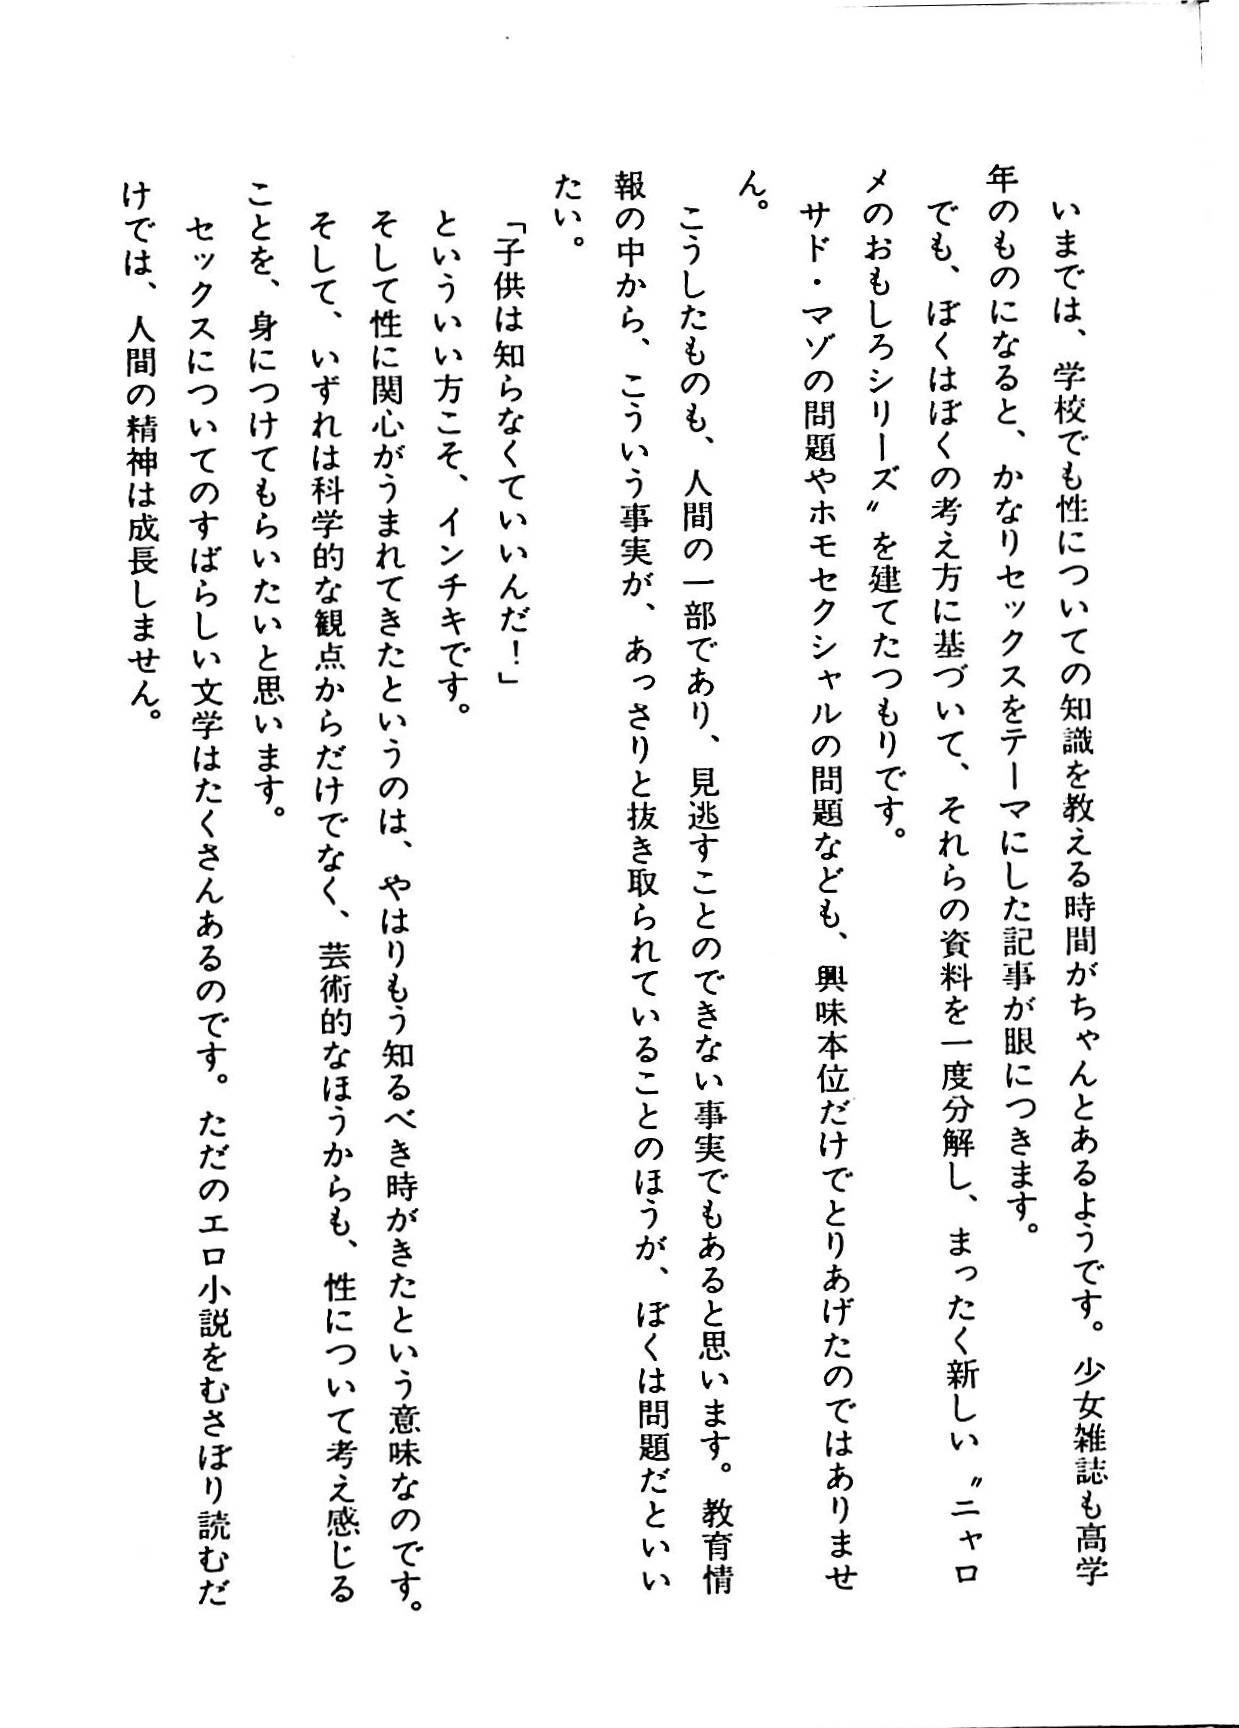 いまでは、学校でも性についての知識を教える時間がちゃんとあるようです。少女雑誌も高学
年のものになると、かなりセックスをテーマにした記事が眼につきます。
でも、ぼくはぼくの考え方に基づいて、それらの資料を一度分解し、まったく新しい〝ニャロ
メのおもしろシリーズ〟を建てたつもりです。
サド・マゾの問題やホモセクシャルの問題なども、興味本位だけでとりあげたのではありませ
ん。
こうしたものも、人間の一部であり、見逃すことのできない事実でもあると思います。教育情
報の中から、こういう事実が、あっさりと抜き取られていることのほうが、ぼくは問題だといい
たい。
「子供は知らなくていいんだ！」
といういい方こそ、インチキです。
そして性に関心がうまれてきたというのは、やはりもう知るべき時がきたという意味なのです。
そして、いずれは科学的な観点からだけでなく、芸術的なほうからも、性について考え感じる
ことを、身につけてもらいたいと思います。
セックスについてのすばらしい文学はたくさんあるのです。ただのエロ小説をむさぼり読むだ
けでは、人間の精神は成長しません。